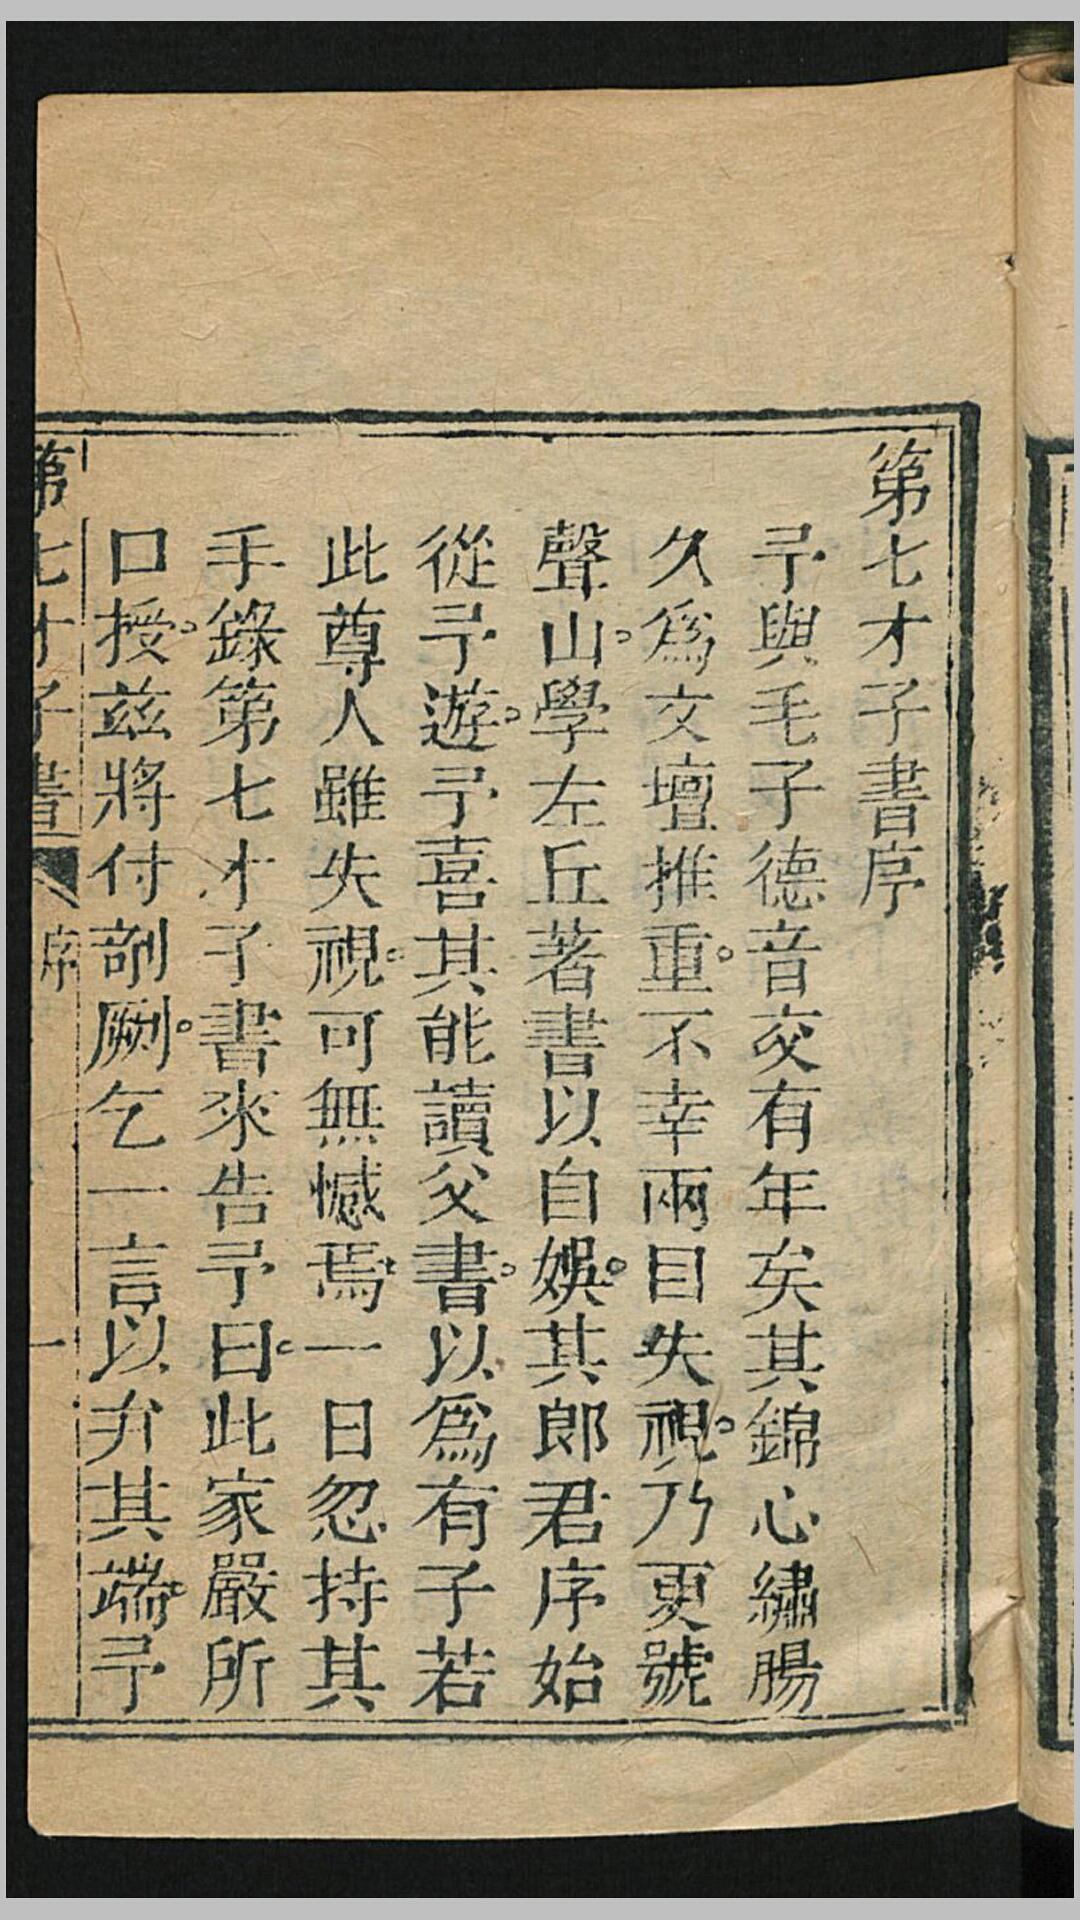 第七才子書序
予與毛子德音交有年矣其錦心繡腸
久爲文壇推重不幸兩目失視乃更號
聲山學左丘著書以自娛其郎君序始
從予遊予喜其能讀父書以爲有子若
此尊人雖失視可無憾焉一日忽持其
手錄第七才子書來告予曰此家嚴所
口授茲將付剞劂乞一言以弁其端予
第七才子書 序 一